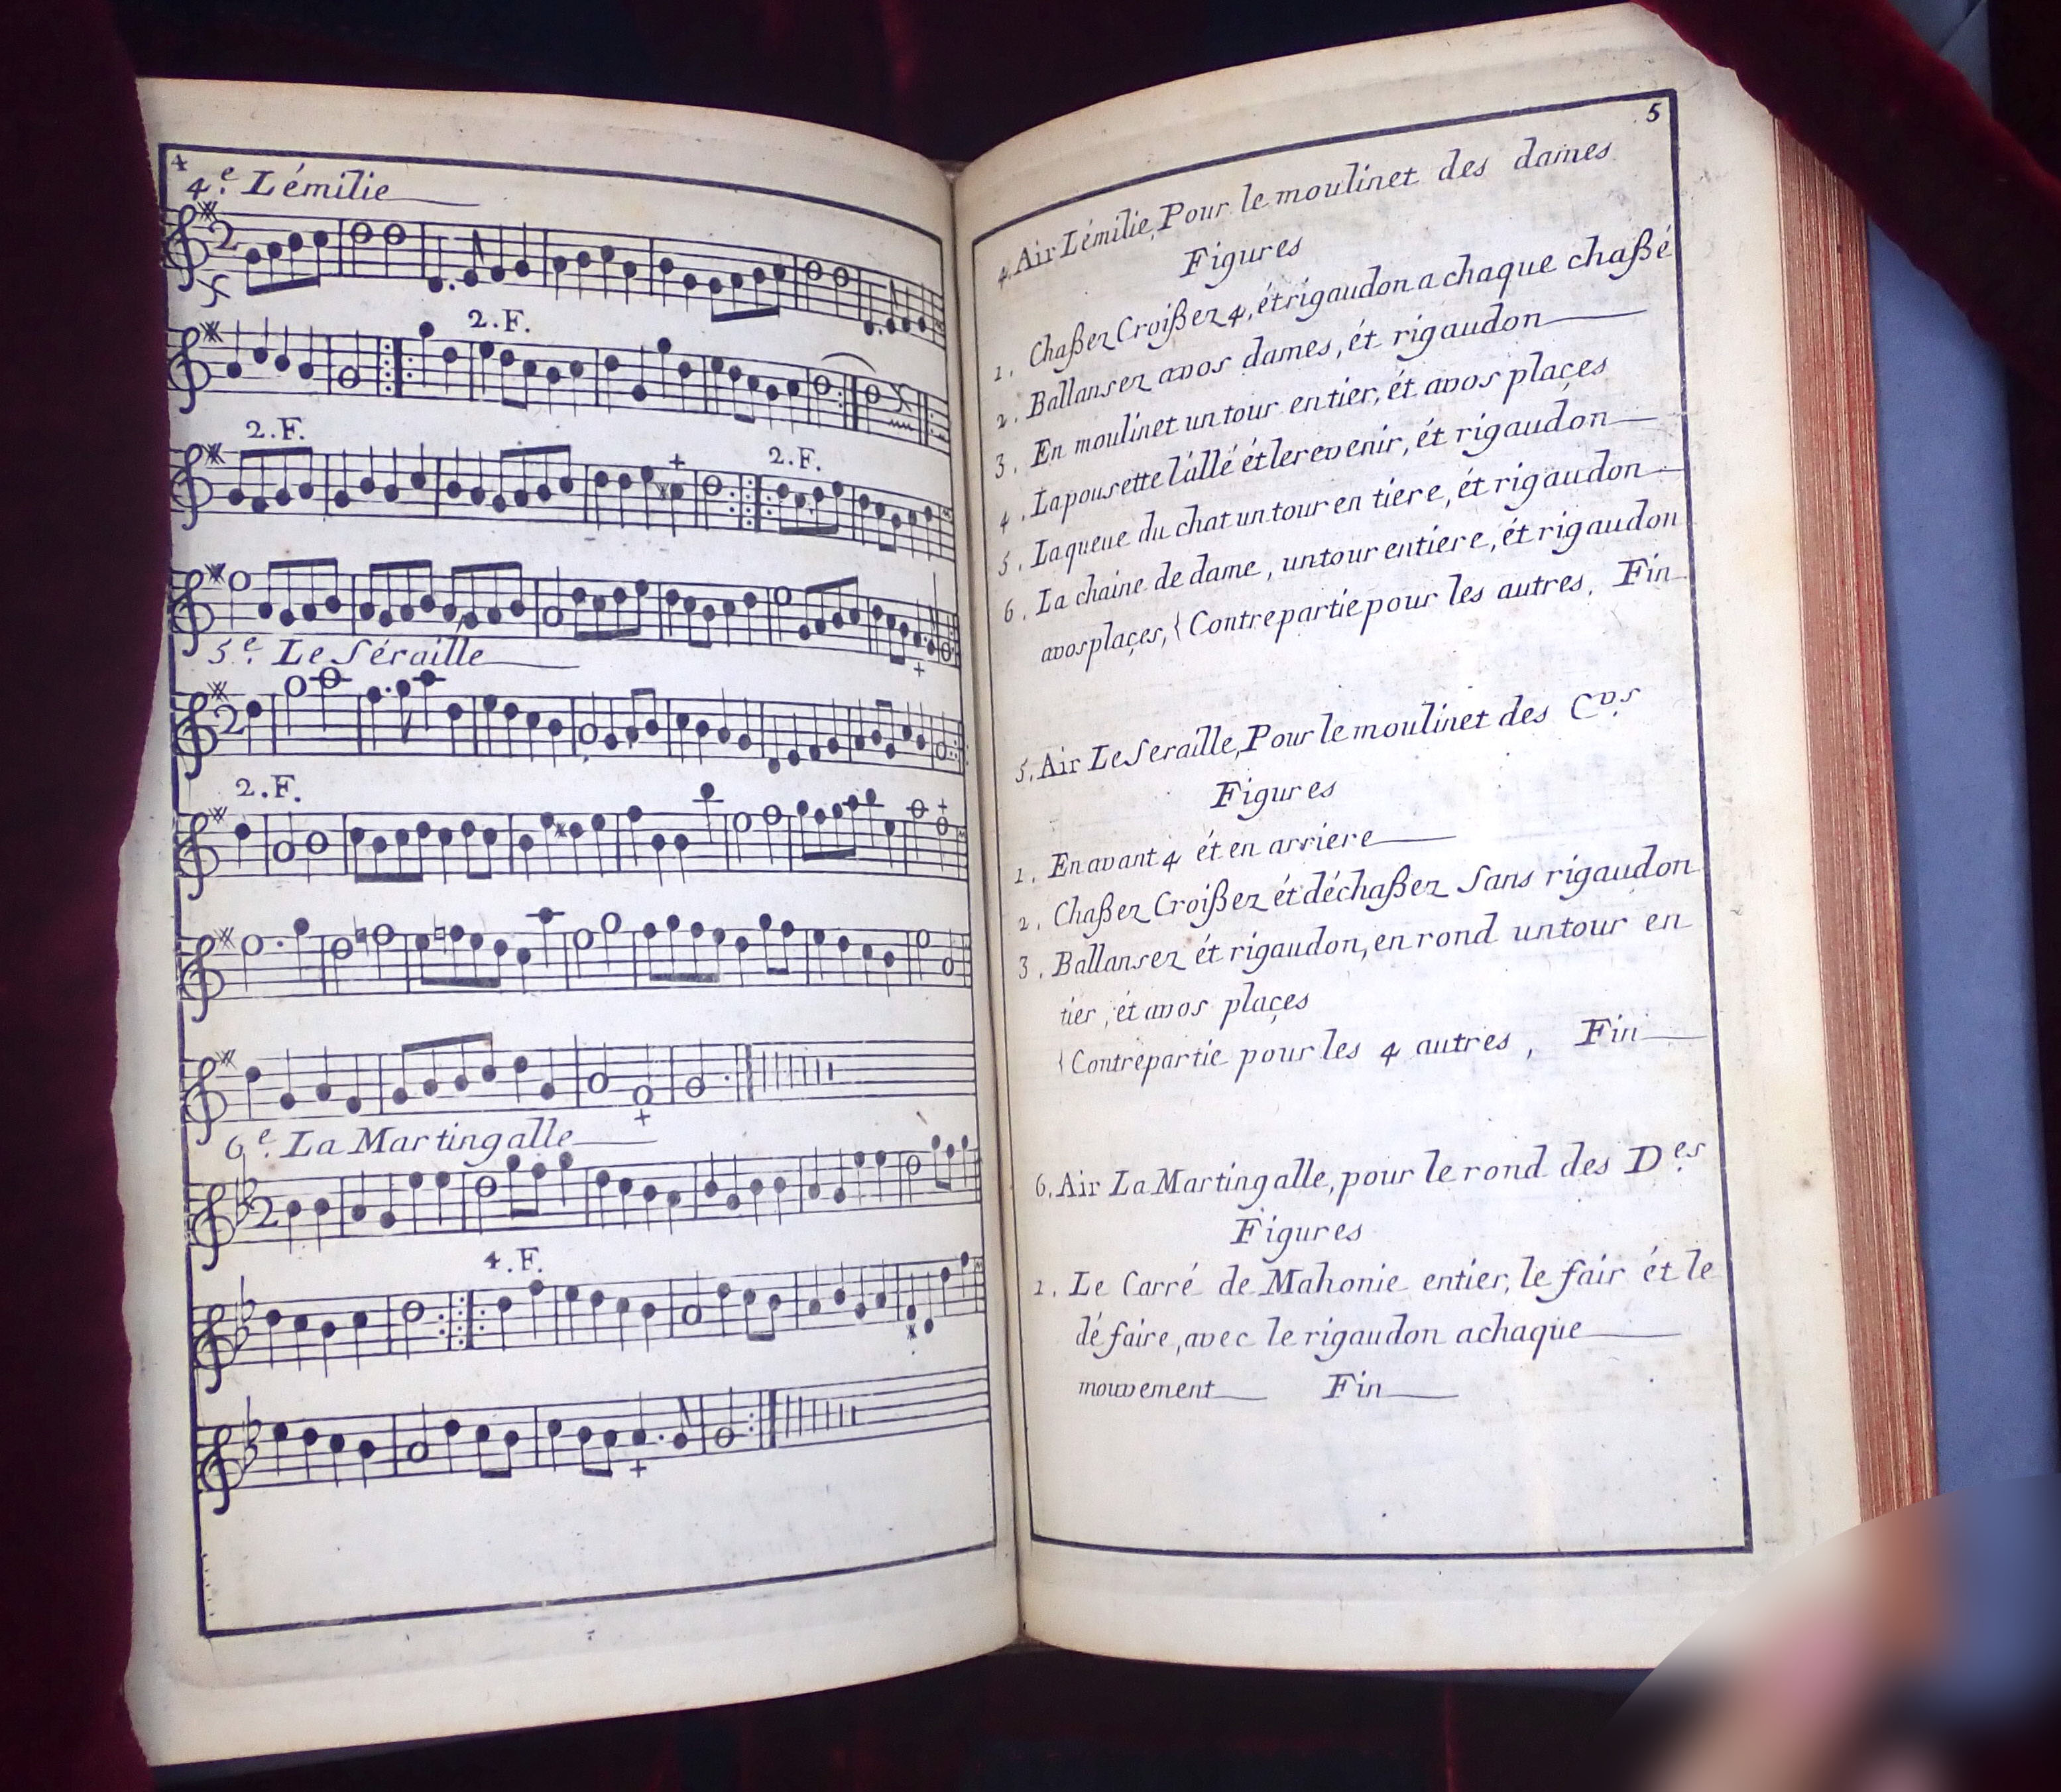 4
4.e Lémilie
2
2.F.
2.F.
2.F.
5.e Le Séraille
2
2.F.
6.e La Martingalle
2
4.F.
5
4. Air Lémilie, Pour le moulinet des dames
Figures
1. Chaßez Croißez 4, ét rigaudon a chaque chaßé
2. Ballansez avos dames, ét rigaudon
3. En moulinet un tour entier, ét avos plaçes
4. La pousette l'allé ét le revenir, ét rigaudon
5. La queue du chat un tour en tiere, ét rigaudon
6. La chaine de dame, un tour entiere, ét rigaudon
avos plaçes, { Contrepartie pour les autres, Fin
5. Air Le Seraille, Pour le moulinet des Cvs
Figures
1. En avant 4 ét en arriere
2. Chaßez Croißez ét déchaßez Sans rigaudon
3. Ballansez ét rigaudon, en rond un tour en
tier, ét avos plaçes
{ Contrepartie pour les 4 autres, Fin
6. Air La Martingalle, pour le rond des Des
Figures
1. Le Carré de Mahonie entier, le fair ét le
dé faire, avec le rigaudon a chaque
mouvement Fin